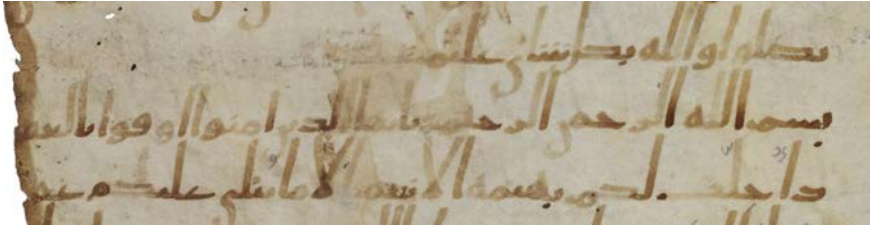 تضلوا والله بكل شاى عليم
بسم الله الرحمن الرحيم يايها الذين امنوا اوفوا بالعقو
د احلت لكم بهيمة الانعم الا ما يتلى عليكم غير